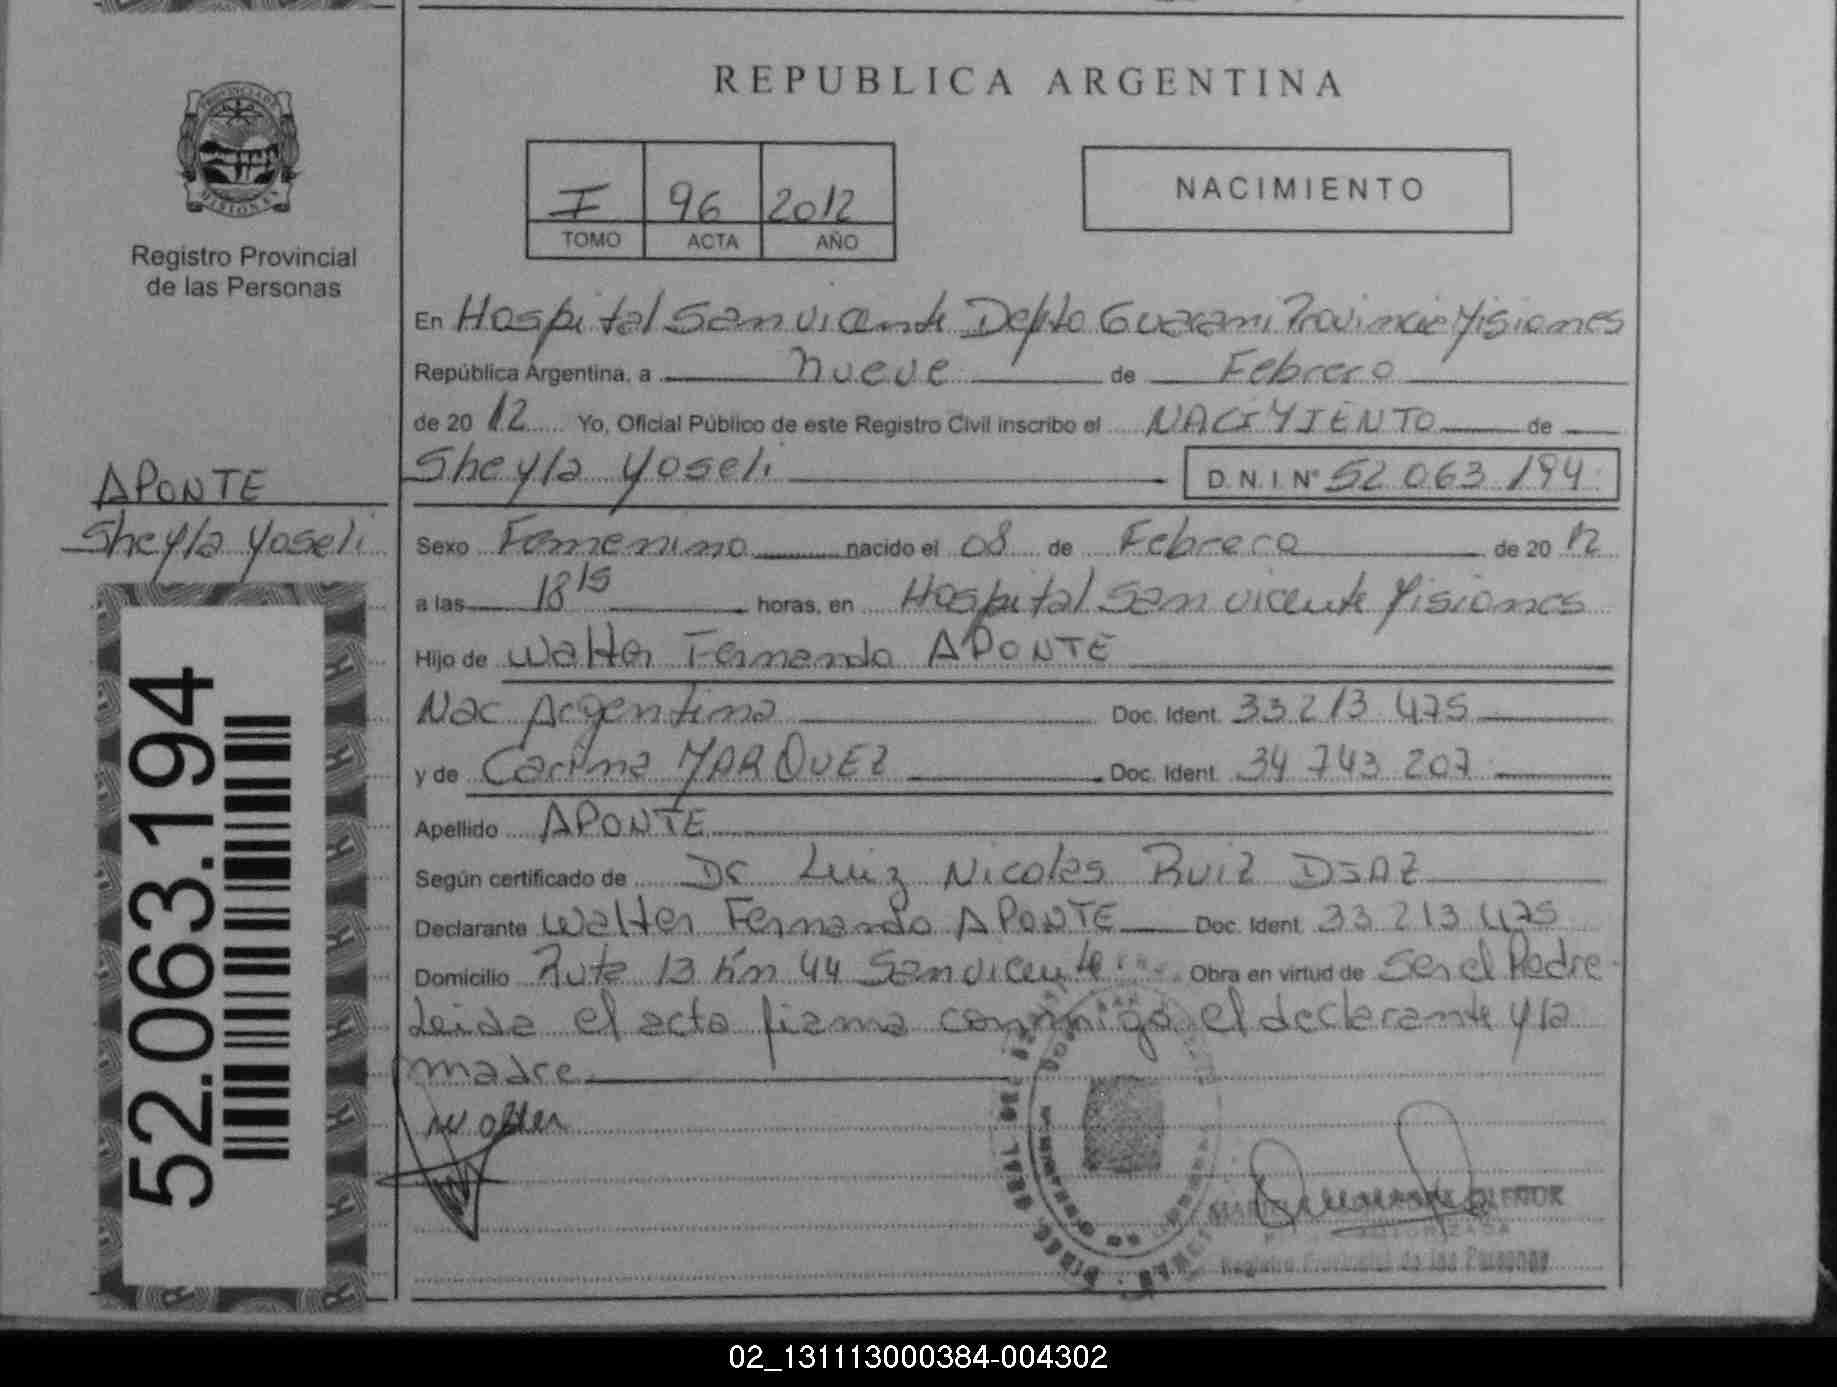 REPUBLICA ARGENTINA
PROVINCIA DE MISIONES
Registro Provincial
de las Personas
I 96 2012
TOMO ACTA AÑO
NACIMIENTO
En Hospital San Vicente Depto Guarani Provincia Misiones
República Argentina, a nueve de Febrero
de 2012 Yo, Oficial Público de este Registro Civil inscribo el NACIMIENTO de
Sheyla Yoseli D.N.I. Nº 52.063.194
APONTE
Sheyla Yoseli
Sexo Femenino nacido el 08 de Febrero de 2012
a las 18 15 horas, en Hospital San Vicente Misiones
Hijo de Walter Fernando APONTE
Nac Argentina Doc. Ident. 33 213 475
y de Carina MARQUEZ Doc. Ident. 34 743 207
Apellido APONTE
Según certificado de Dr Luiz Nicolas Ruiz DIAZ
Declarante Walter Fernando APONTE Doc. Ident. 33 213 475
Domicilio Ruta 13 Km 44 San Vicente Obra en virtud de Ser el Padre
Leida el acta firma conmigo el declarante y la
madre
Walter
52.063.194
Registro Provincial de las Personas
02_131113000384-004302